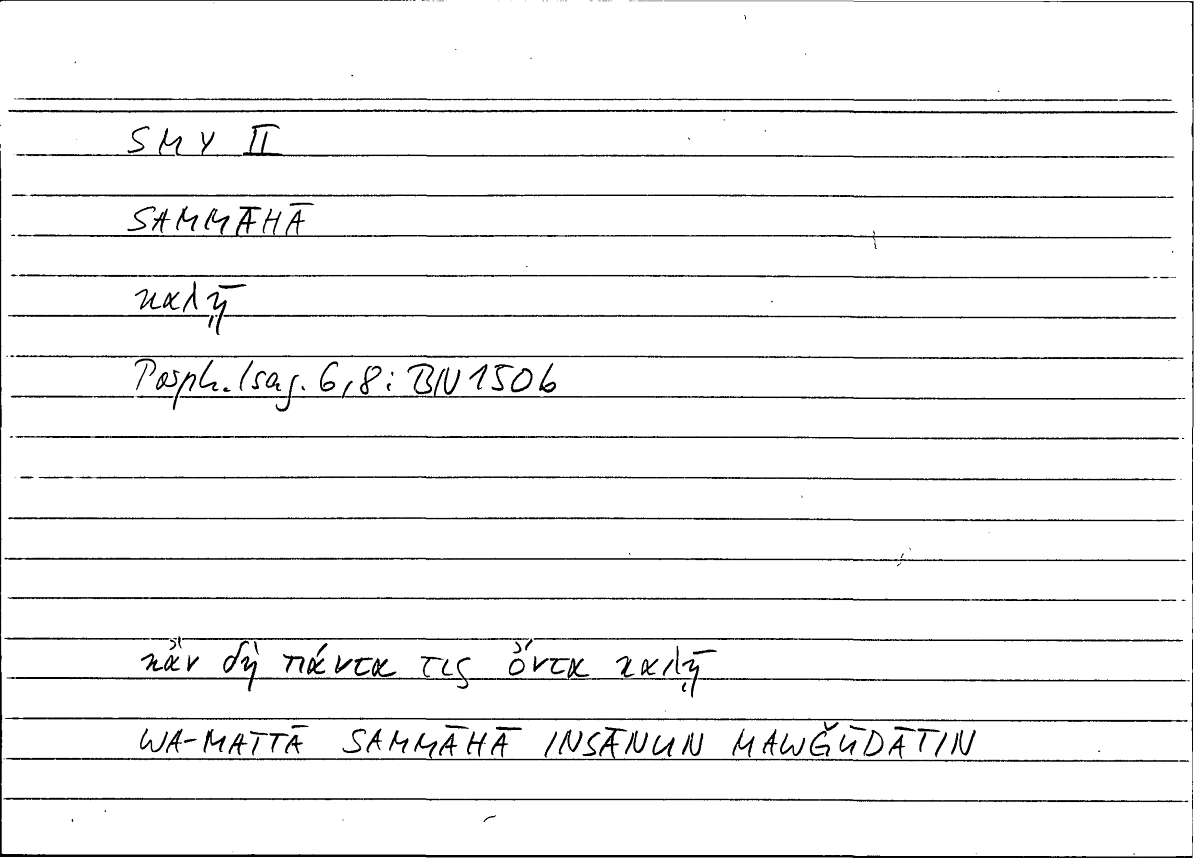 SMY II
SAMMĀHĀ
καλῇ
Porph. Isag. 6,8: BN 150b
κἂν δὴ πάντα τις ὄντα καλῇ
WA-MATTĀ SAMMĀHĀ INSĀNUN MAWǦŪDĀTIN